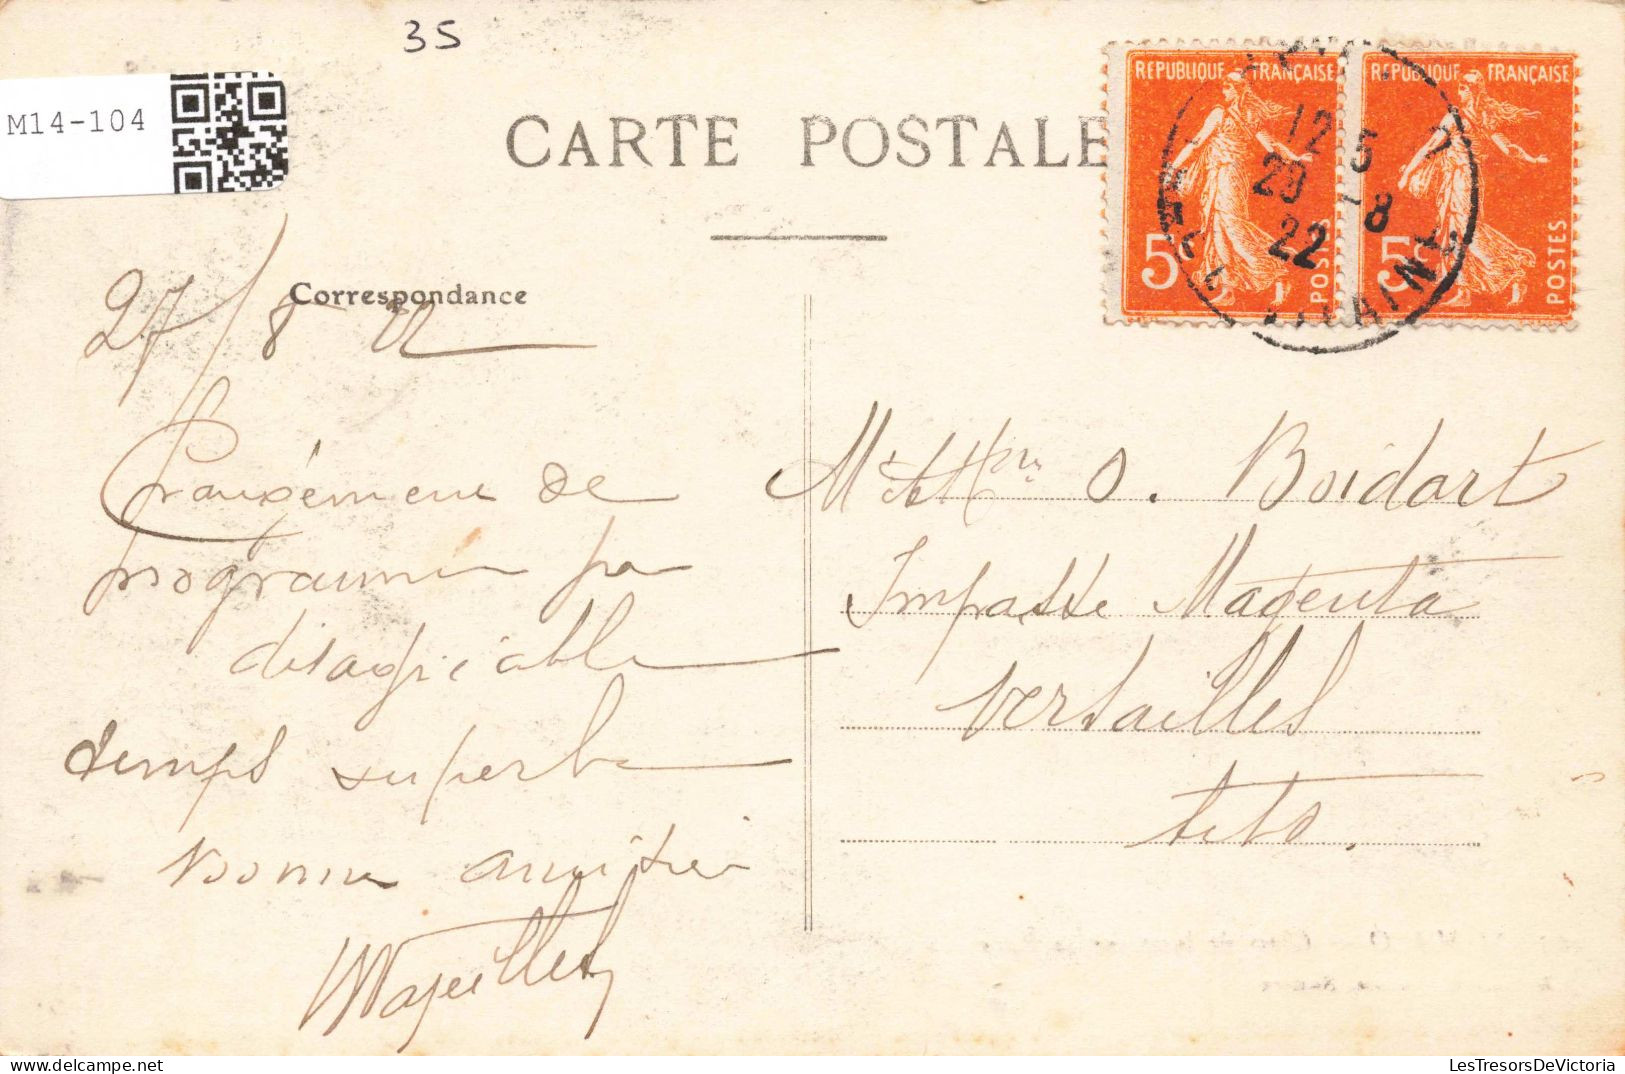 35
M14-104
CARTE POSTALE
REPUBLIQUE FRANÇAISE
5c
POSTES
REPUBLIQUE FRANÇAISE
5c
POSTES
12 5
29 -8
22
ILLE ET VILAINE
Correspondance
27/8 22
Changement de
programme pas
désagréable
temps superbe
Bonne amitié
M et Mme O. Boidart
Impasse Magenta
Versailles
LesTresorsDeVictoria